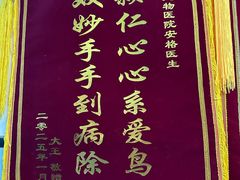 物医院安格医生
仁心心系爱鸟
妙手手到病除
大王 敬赠
二零二五年一月